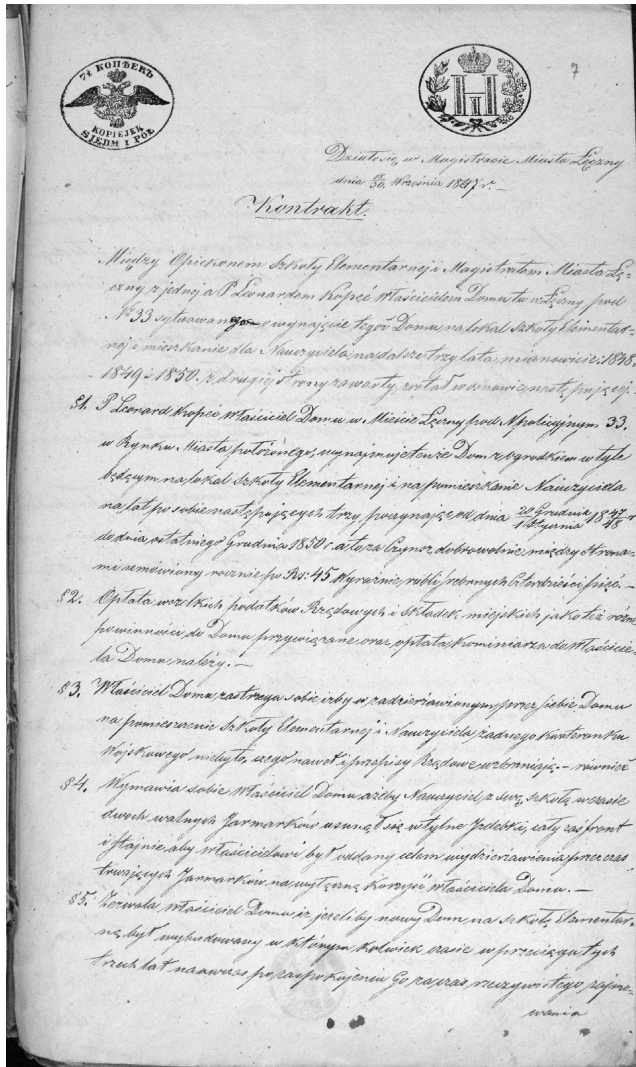 7½ КОПѢЕКЪ
KOPIEJEK
SIEDM I PÓŁ
7
Działo się w Magistracie Miasta Łęczny
dnia 18/30 Września 1847 r.
Kontrakt.
Między Opiekonem Szkoły Elementarnej i Magistratem Miasta Łę-
czny z jednej a P Leonardem Kopeć Właścicielem Domu tu w Łęczny pod
No 33 sytuowanego o wynajęcie tegóż Domu na lokal Szkoły Elementar-
nej i mieszkanie dla Nauczyciela na dalsze trzy lata, mianowicie: 1848.
1849 i 1850. z drugiej strony zawarty został w osnowie następującej:
§1. P Leonard Kopeć Właściciel Domu w Mieście Łęczny pod N policyjnym 33.
w Rynku Miasta położonego, wynajmuje tenże Dom z Ogrodkiem w tyle
będącym na lokal Szkoły Elementarnej i na pomieszkanie Nauczyciela
na lat po sobie następujących trzy, poczynając od dnia 20 Grudnia/1 Stycznia 1847/48 r
do dnia ostatniego Grudnia 1850 r. a to za Czynsz dobrowolnie między Strona-
mi umówiony rocznie po Rs: 45 Wyraźnie rubli srebrnych Czterdzieści pięć. —
§2. Opłata wszelkich podatków Rządowych i Składek miejskich jako też różne
powinności do Domu przywiązane oraz opłata Kominiarza do Właścicie-
la Domu należy. —
§3. Właściciel Domu zastrzega sobie iżby w zadzierżawionym przez siebie Domu
na pomieszczenie Szkoły Elementarnej i Nauczyciela żadnego Kwaterunku
Wojskowego niebyło, czego nawet i przepisy Rządowe wzbraniają. — również
§4. Wymawia sobie Właściciel Domu ażeby Nauczyciel z swą Szkołą w czasie
dwóch walnych Jarmarków usunął się w tylne Izdebki, cały zaś front
i stajnie aby Właścicielowi był oddany celem wydzierżawienia przez czas
trwających Jarmarków na wyłączną Korzyść Właściciela Domu. —
§5. Zezwala Właściciel Domu iż jeżeliby nowy Dom na Szkołę Elementar-
ną był wybudowany w którym kolwiek czasie w przeciągu tych
trzech lat naówczas po zaspokojeniu Go za czas rzeczywistego zajmo-
wania